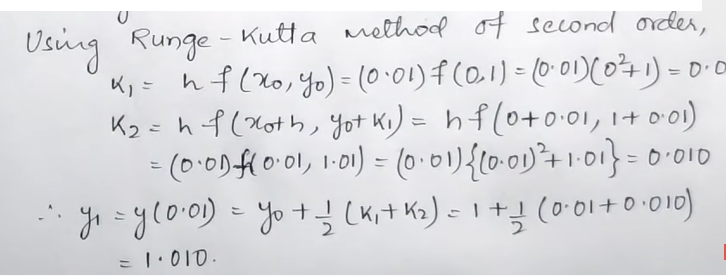 Using Runge-Kutta method of second order,
K₁ = h f(x₀, y₀) = (0.01) f(0,1) = (0.01)(0²+1) = 0.0
K₂ = h f(x₀+h, y₀+K₁) = h f(0+0.01, 1+0.01)
= (0.01) f(0.01, 1.01) = (0.01) {(0.01)²+1.01} = 0.010
∴ y₁ = y(0.01) = y₀ + 1/2 (K₁+K₂) = 1 + 1/2 (0.01+0.010)
= 1.010.